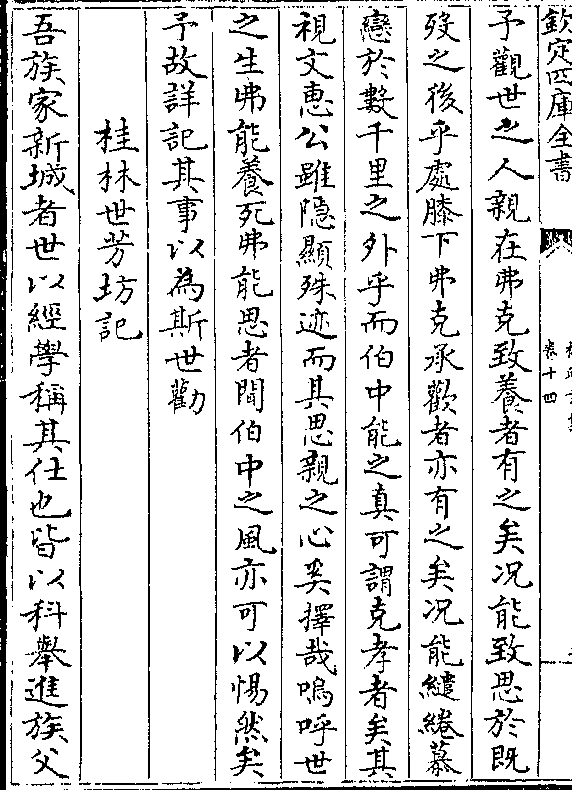 欽定四庫全書
卷十四
予觀世之人親在弗克致養者有之矣况能致思於既
歿之後乎處膝下弗克承歡者亦有之矣况能繾綣慕
戀於數千里之外乎而伯中能之真可謂克孝者矣其
視文惠公雖隱顯殊迹而其思親之心奚擇哉嗚呼世
之生弗能養死弗能思者聞伯中之風亦可以惕然矣
予故詳記其事以為斯世勸
桂林世芳坊記
吾族家新城者世以經學稱其仕也皆以科舉進族父